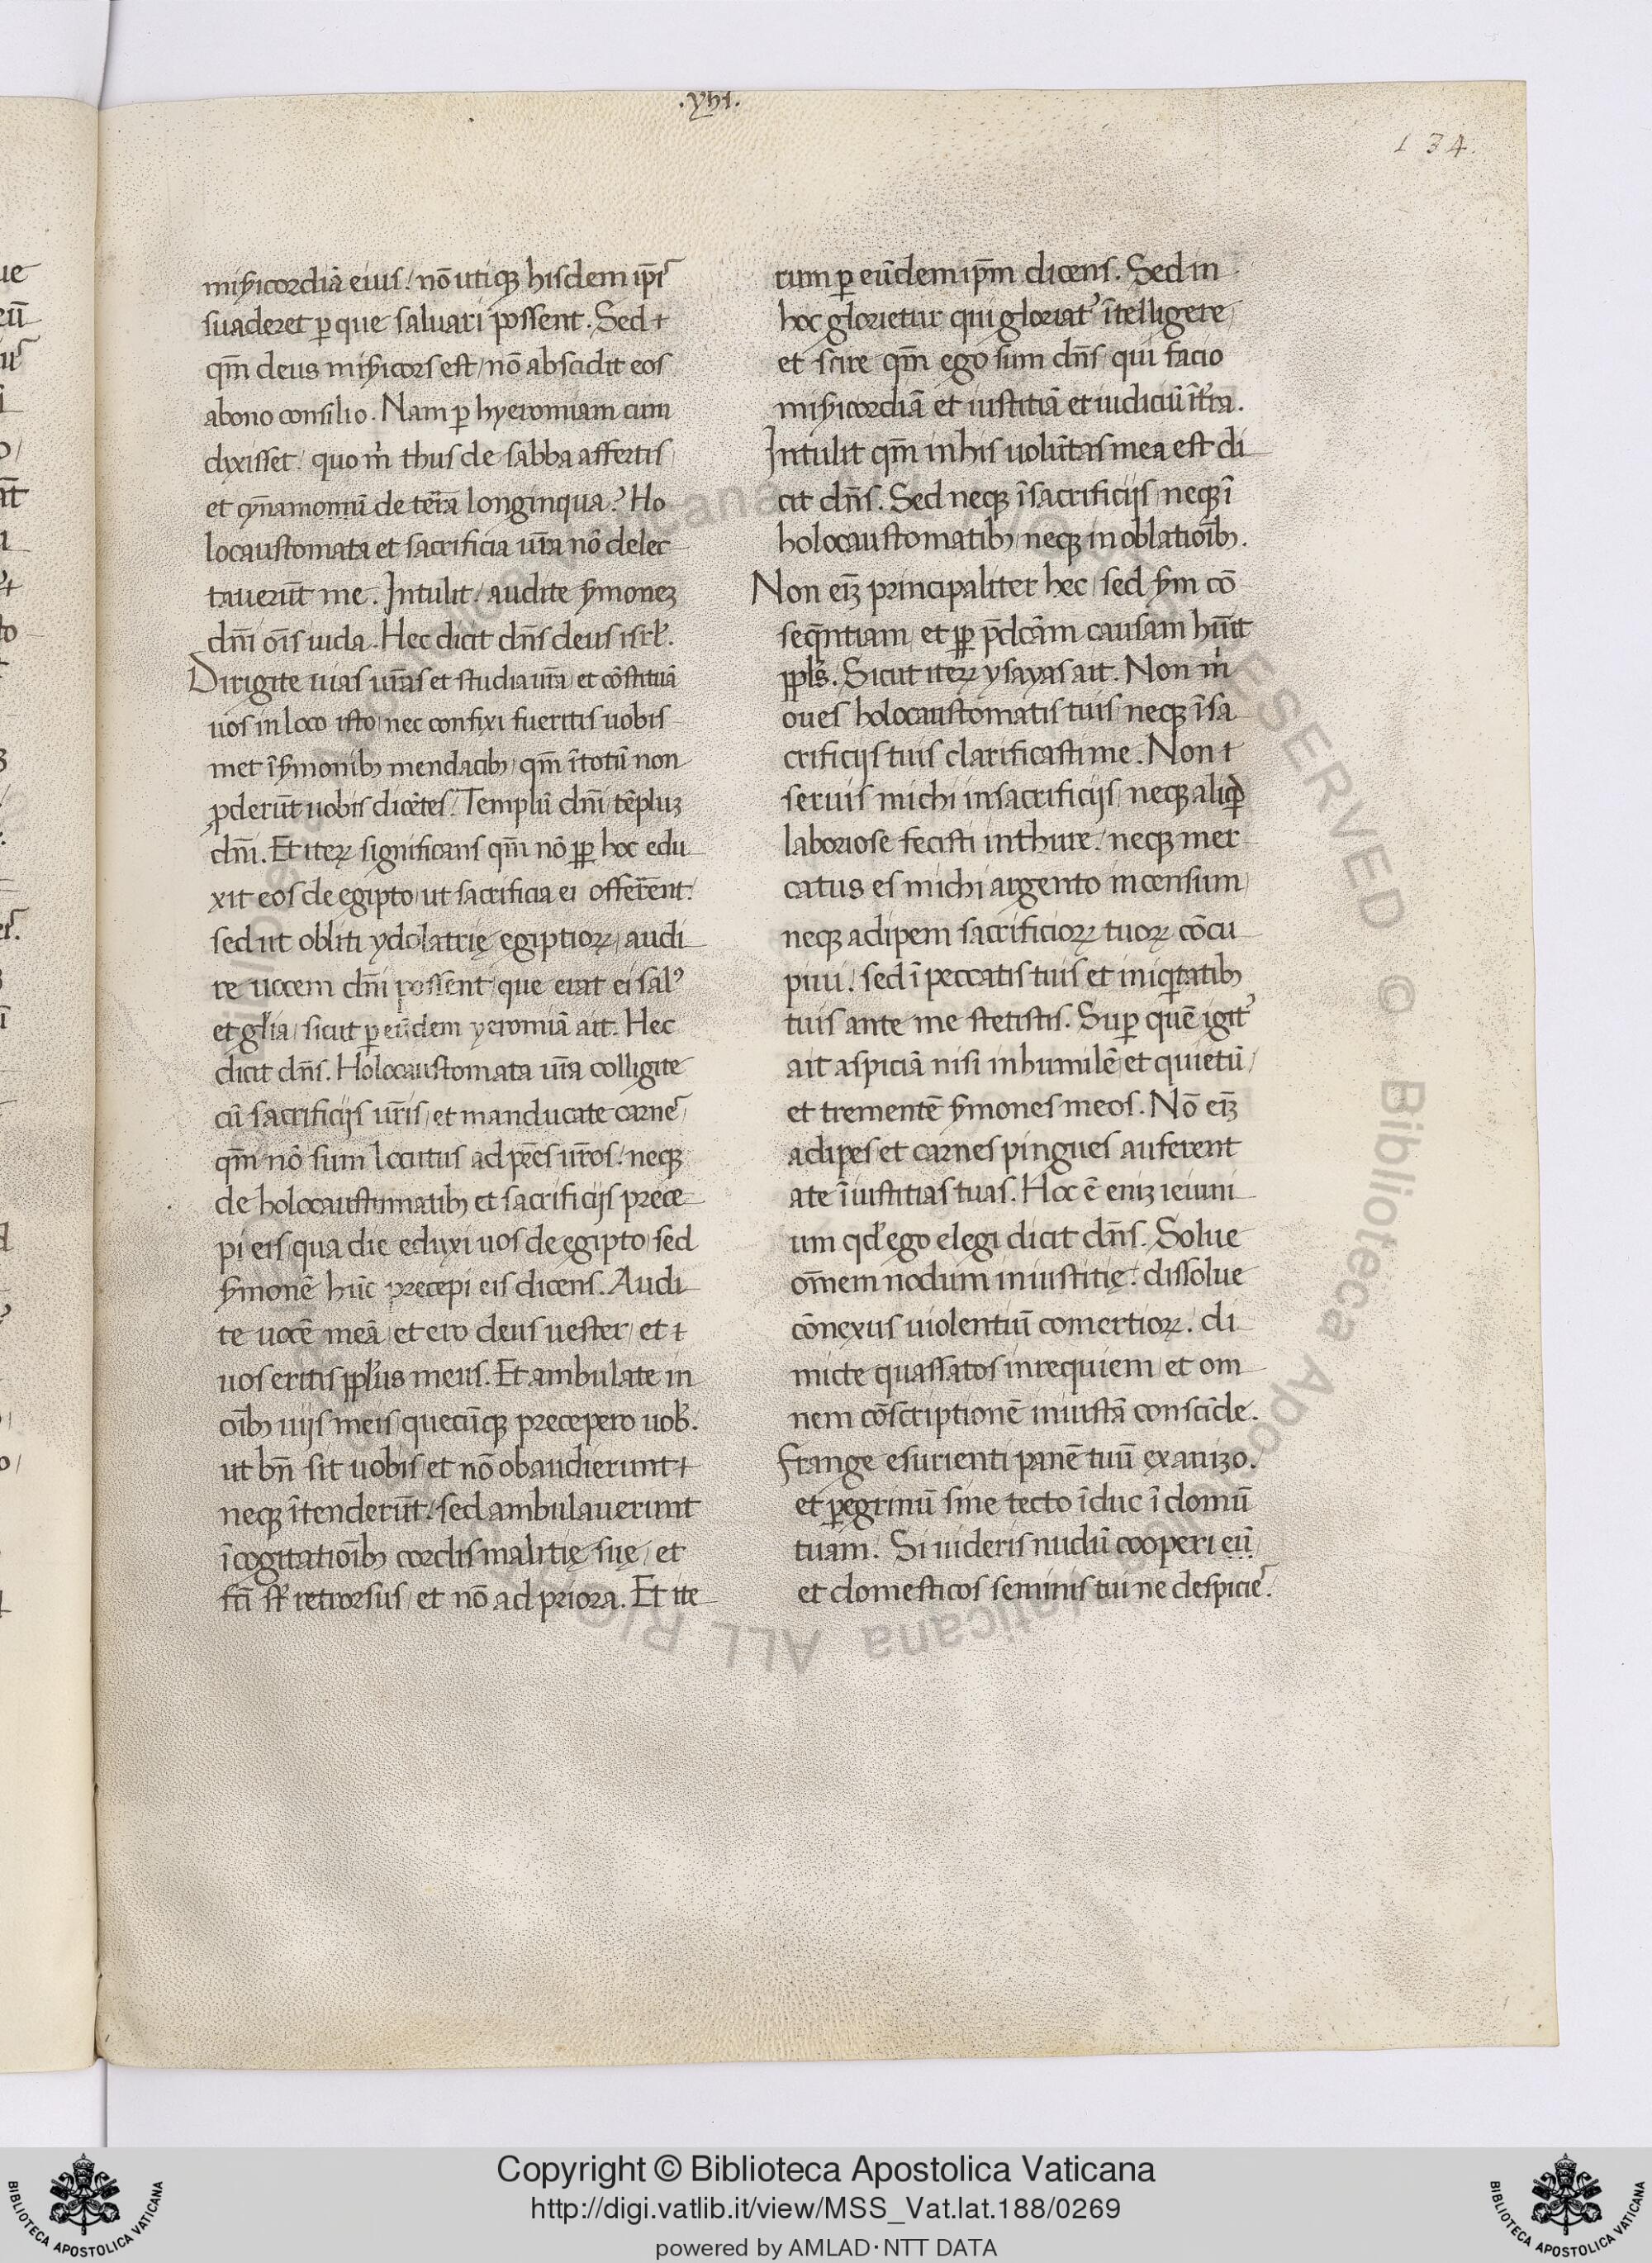 .xviii.
134.
misericordiā eius / nō utiqꝫ hisdem ip̄is
suaderet ꝑ que saluari possent. Sed ⁊
qm̄ deus misericors est / nō abscidit eos
abono consilio. Nam ꝑ hyeromiam cum
dixisset / quo m̄ thus de sabba affertis /
et cynamomū de terrā longinqua? Ho
locaustomata et sacrificia ur̄a nō delec
tauerūt me. Intulit / audite sermonez
dn̄i oīs iuda. Hec dicit dn̄s deus isrl̄.
Dirigite uias ur̄as et studia ur̄a / et cōstituā
uos in loco isto / nec confixi fueritis uobis
met ī sermonibꝫ mendacibꝫ / qm̄ ītotū non
ꝓderūt uobis dicētes / Templū dn̄i tēpluz
dn̄i. Et iteꝝ significans qm̄ nō ꝓꝑ hoc edu
xit eos de egipto / ut sacrificia ei offerēnt.
sed ut obliti ydolatrię egiptioꝝ / audi
re uocem dn̄i possent / que erat ei salꝰ
et gl̄ia / sicut ꝑ eūdem yeromiā ait. Hec
dicit dn̄s. Holocaustomata ur̄a colligite
cū sacrificijs ur̄is / et manducate carnes
qm̄ nō sum locutus ad pr̄es ur̄os / neqꝫ
de holocaustumatibꝫ et sacrificijs prece
pi eis / qua die eduxi uos de egipto / sed
sermonē hūc precepi eis dicens. Audi
te uocē meā / et ero deus uester / et ⁊
uos eritis ppl̄us meus. Et ambulate in
oībꝫ uijs meis / quecūqꝫ precepero uob̄.
ut bn̄ sit uobis / et nō obaudierunt ⁊
neqꝫ ītenderūt / sed ambulauerunt
ī cogitatioībꝫ cordis malitię suę / et
fc̄i st̄ retrorsus / et nō ad priora. Et ite
rum ꝑ eūdem ip̄m dicens. Sed in
hoc glorietur qui gloriatꝰ ītelligere /
et scire qm̄ ego sum dn̄s / qui facio
misericordiā et iustitiā et iudiciū īt̄ra.
Intulit qm̄ in his uolūtas mea est di
cit dn̄s. Sed neqꝫ ī sacrificijs / neqꝫ ī
holocaustomatibꝫ / neqꝫ in oblatioībꝫ.
Non eīz principaliter hec / sed sermn cō
seq̄ntiam / et ꝓꝑ p̄dcām causam hn̄it
ppl̄s. Sicut iteꝝ ysayas ait. Non m̄
oues holocaustomatis tuis / neqꝫ ī sa
crificijs tuis clarificasti me. Non ⁊
seruis michi in sacrificijs / neqꝫ aliqd̄
laboriose fecisti in thure / neqꝫ mer
catus es michi argento incensum /
neqꝫ adipem sacrificioꝝ tuoꝝ cōcu
piui / sed ī peccatis tuis et iniqtatibꝫ
tuis ante me stetistis. Suꝑ quē igitꝰ
ait aspiciā nisi in humilē et quietū /
et trementē sermones meos. Nō eīz
adipes et carnes pingues auferent
a te īiustitias tuas. Hoc ē eniz ieiuni
um qd̄ ego elegi dicit dn̄s. Solue
om̄em nodum iniustitię / dissolue
cōnexus uiolentiū comertioꝝ. di
micte quassatos in requiem / et om
nem cōscriptionē iniustā conscīde.
Frange esurienti panē tuū ex anizo.
et ꝑegrinū sine tecto īduc ī domū
tuam. Si uideris nudū cooperi eū /
et domesticos seminis tui ne despicies.
Copyright © Biblioteca Apostolica Vaticana
http://digi.vatlib.it/view/MSS_Vat.lat.188/0269
powered by AMLAD·NTT DATA